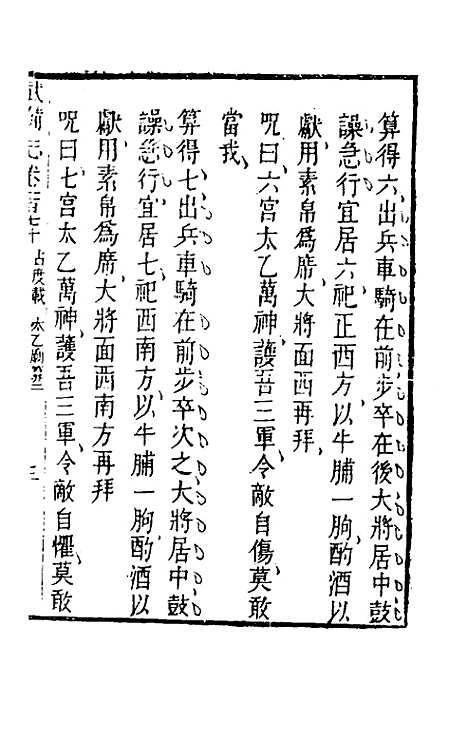 算得六出兵車騎在前步卒在後大將居中鼓
譟急行宜居六祀正西方以牛脯一朐酌酒以
獻用素帛爲席大將面西再拜
呪曰六宮太乙萬神護吾三軍令敵自傷莫敢
當我
算得七出兵車騎在前步卒次之大將居中鼓
譟急行宜居七祀西南方以牛脯一朐酌酒以
獻用素帛爲席大將面西南方再拜
呪曰七宮太乙萬神護吾三軍令敵自懼莫敢
武備志卷一百七十 占度載 太乙 三